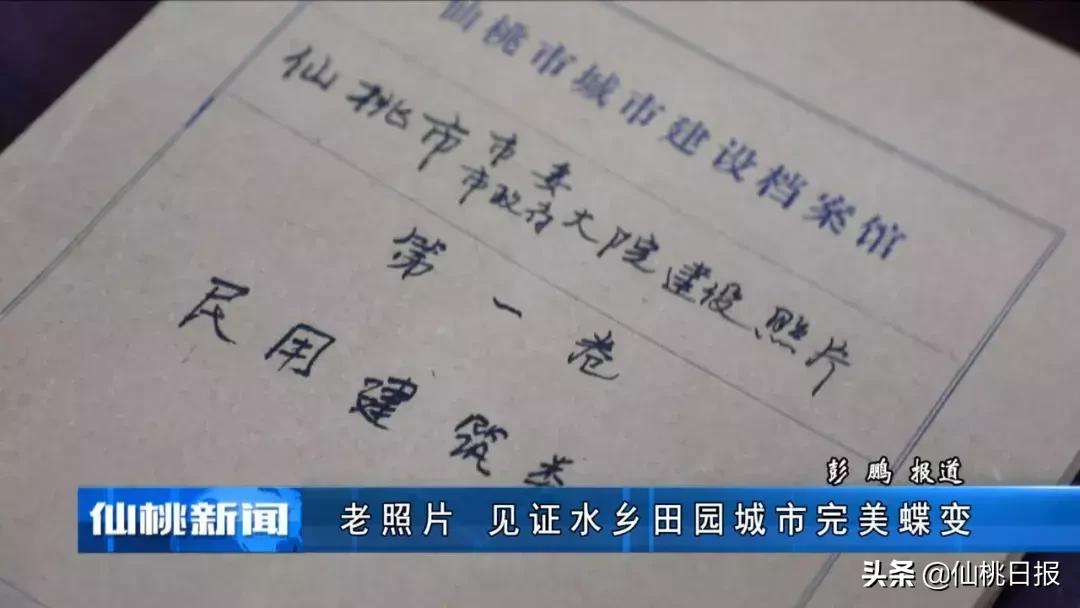 仙桃市城市建设档案馆
仙桃市市委
市政府大院建设照片
第一卷
民用建筑类
彭鹏 报道
仙桃新闻
老照片 见证水乡田园城市完美蝶变
头条 @仙桃日报